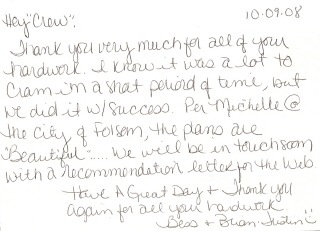 10.09.08
Hey "Crew":
Thank you very much for all of your
hardwork. I know it was a lot to
cram in a short period of time, but
we did it w/ success. Per Michelle @
the city of Folsom, the plans are
"Beautiful"..... We will be in touch soon
with a recommendation letter for the Web.
Have A Great Day + Thank you
again for all your hardwork
Bess + Brian Justin